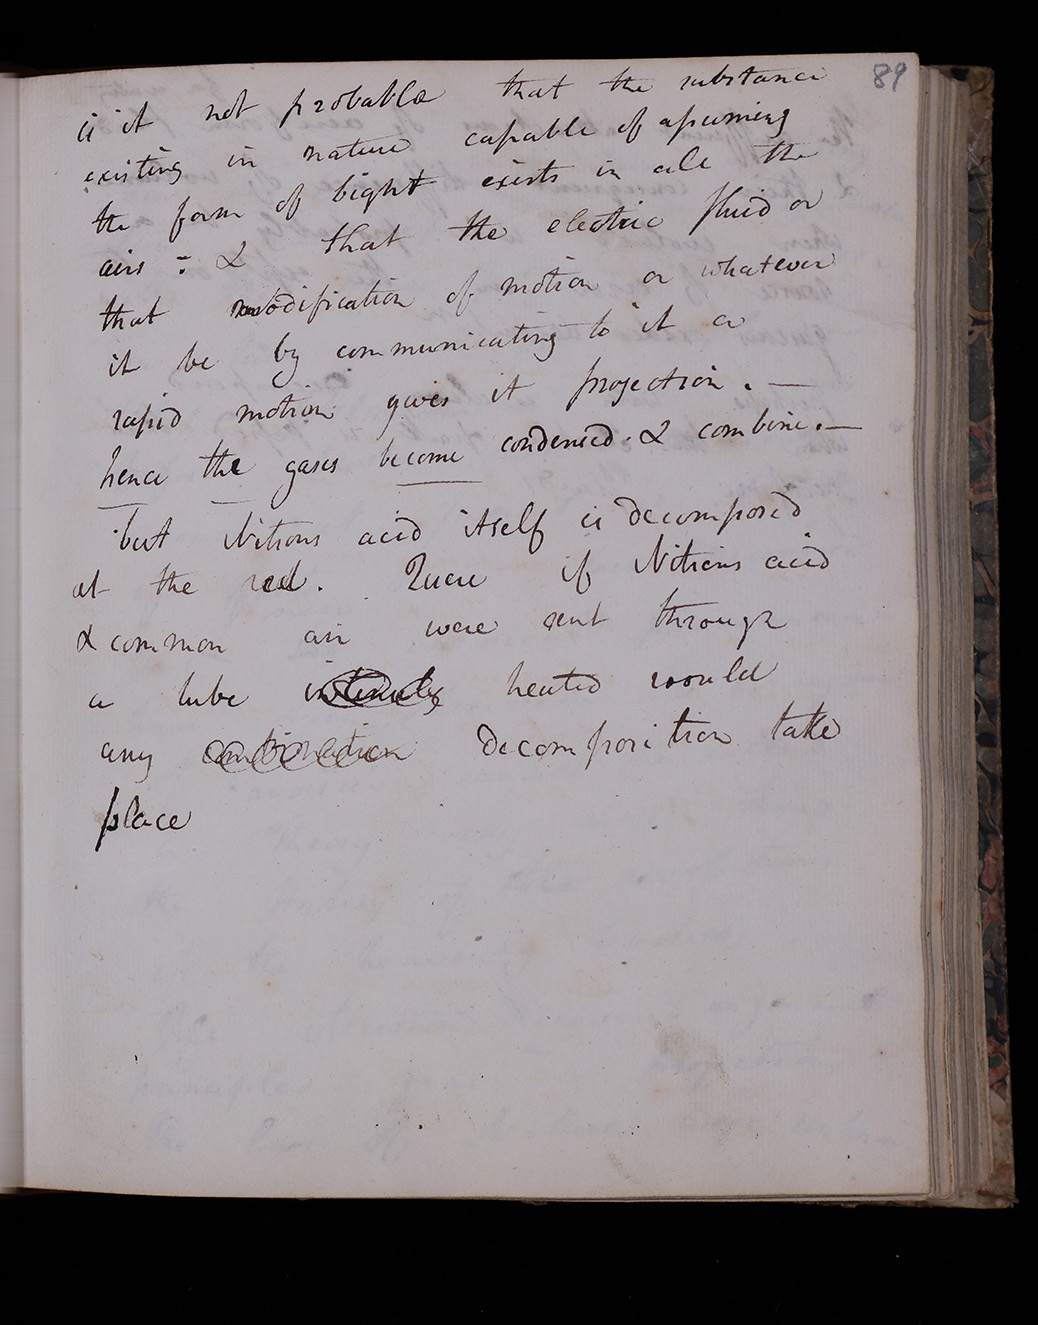 89
is it not probable that the substance
existing in nature capable of assuming
the form of light exists in all the
airs : & that the electric fluid or
that modification of motion or whatever
it be by communicating to it a
rapid motion gives it projection. —
hence the gases become condensed. & combine. —
but Nitrous acid itself is decomposed
at the red. Quere if Nitrous acid
& common air were sent through
a tube intensely heated would
any combination decomposition take
place